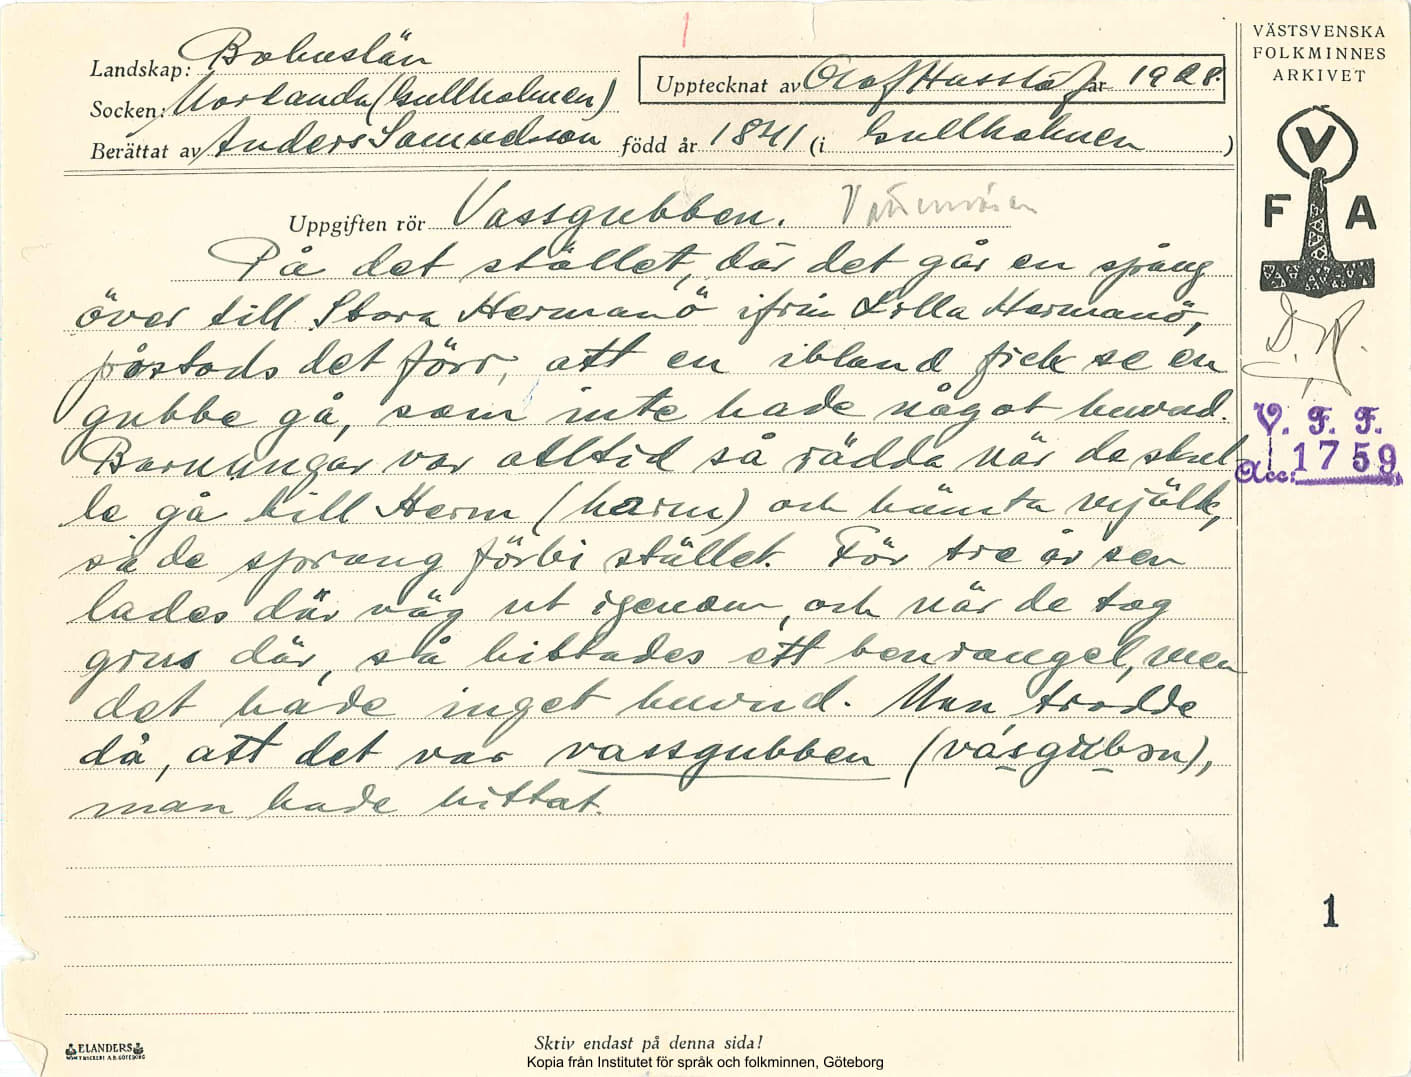 VÄSTSVENSKA
FOLKMINNES
ARKIVET
Landskap: Bohuslän
Socken: Morlanda (Gullholmen)
Upptecknat av Olof Hasslöf år 1928.
Berättat av Anders Samuelsson född år 1841 (i Gullholmen )
V
F A
Uppgiften rör Vassgubben.
På det stället, där det går en spång
över till Stora Hermanö ifrån Lilla Hermanö,
påstods det förr, att en ibland fick se en
gubbe gå, som inte hade något huvud.
Barnungar var alltid så rädda när de skul
le gå till Herm (harm) och hämta mjölk,
så de sprang förbi stället. För tre år sen
lades där väg ut igenom, och när de tog
grus där, så hittades ett benrangel, men
det hade inget huvud. Man trodde
då, att det var vassgubben (vásgubən),
man hade hittat.
V. F. F.
Acc. 1759
1
ELANDERS
Skriv endast på denna sida!
Kopia från Institutet för språk och folkminnen, Göteborg